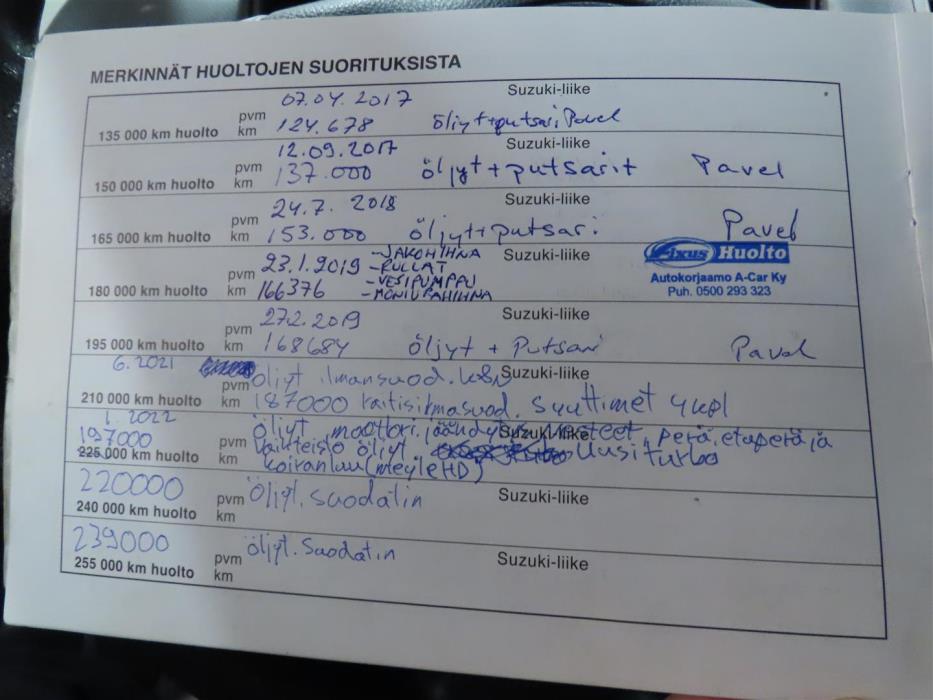 MERKINNÄT HUOLTOJEN SUORITUKSISTA
07.04.2017 Suzuki-liike
135 000 km huolto pvm km 124.678 öljyt+putsari Pavel
12.09.2017 Suzuki-liike
150 000 km huolto pvm km 137.000 öljyt+putsarit Pavel
24.7. 2018 Suzuki-liike
165 000 km huolto pvm km 153.000 öljyt+putsari Pavel
Axus Huolto
Autokorjaamo A-Car Ky
Puh. 0500 293 323
23.1.2019 -JAKOHIHNA Suzuki-liike
-RULLAT
-VESIPUMPPU
180 000 km huolto pvm km 166376 -MONIURAHIHNA
27.2.2019 Suzuki-liike
195 000 km huolto pvm km 168684 öljyt + putsari Pavel
6. 2021 öljyt ilmansuod. K&N Suzuki-liike
210 000 km huolto pvm km 187000 raitisilmasuod. Suuttimet 4kpl
1. 2022 öljyt, moottori. jäähdytys nesteet, perä, etuperä ja Suzuki-liike
197000 vaihteisto öljyt. Uusi turbo
225 000 km huolto pvm km koiranluu (meyle HD)
220000 öljyt. suodatin Suzuki-liike
240 000 km huolto pvm km
239000 öljyt. Suodatin Suzuki-liike
255 000 km huolto pvm km